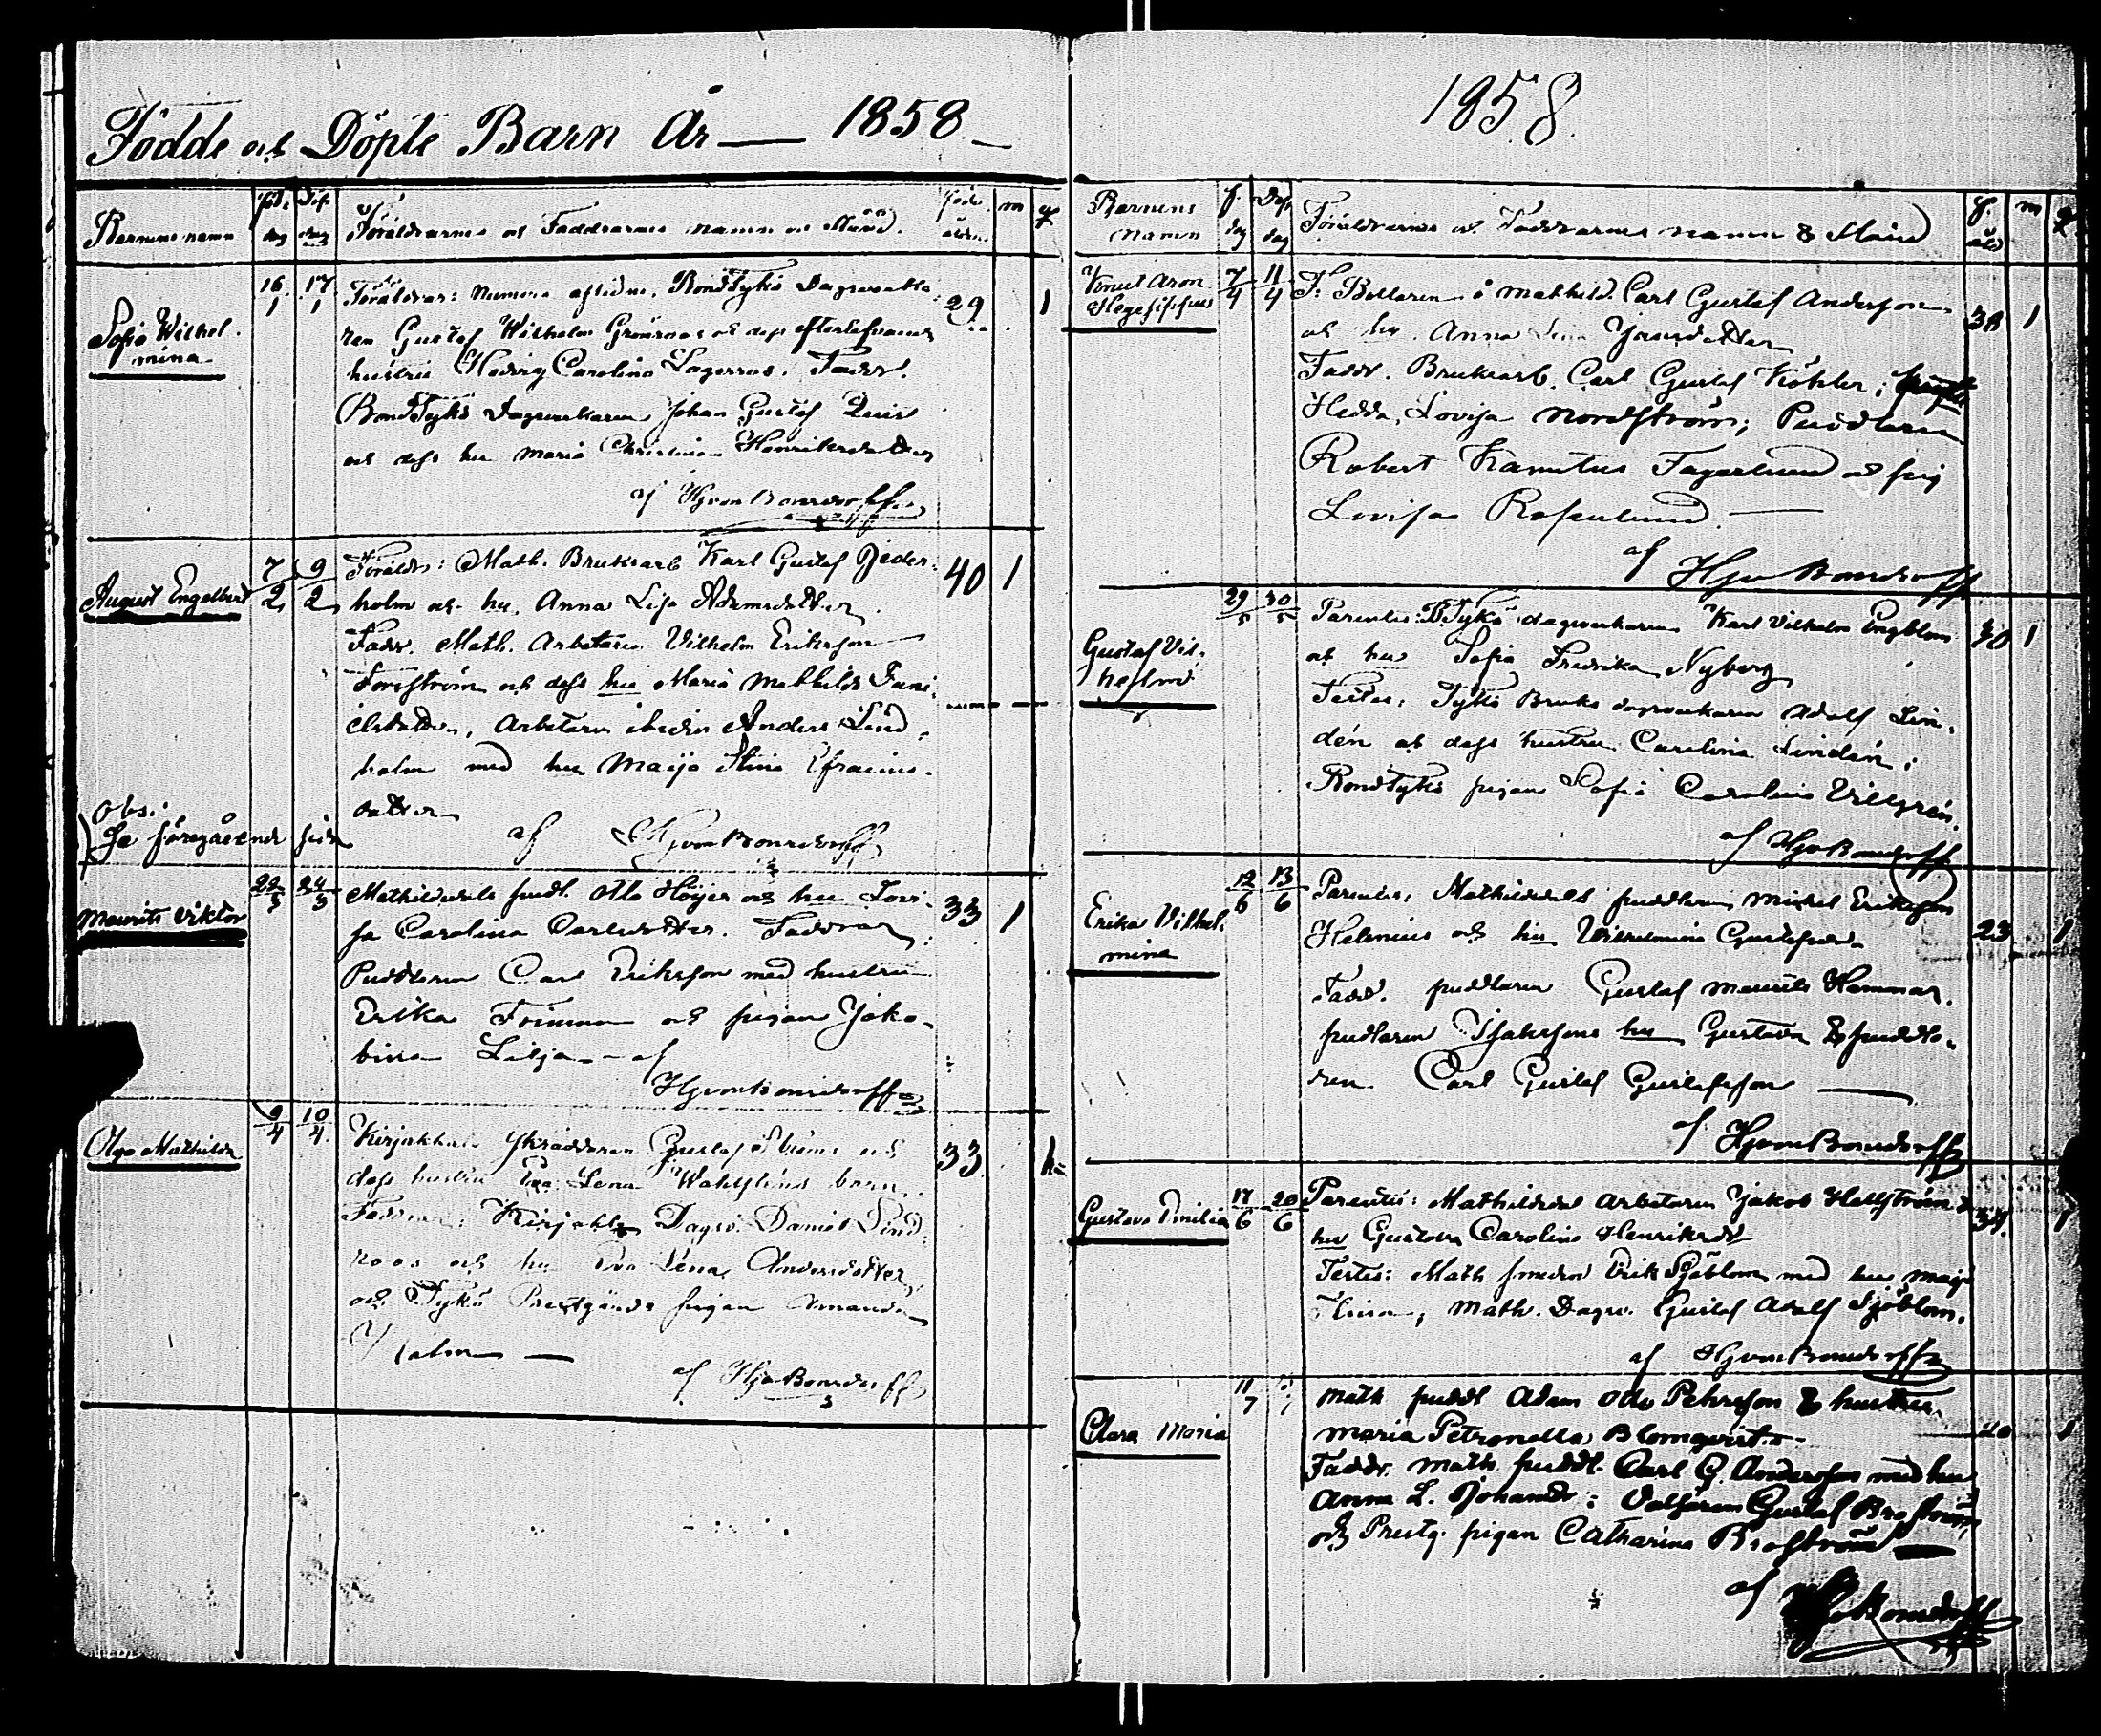 Födde och Döpte Barn År — 1858 —
Barnens namn
föd. dag
döp. dag
Föräldrarnes och Faddrarnes namn och Stånd.
föde åldr.
m
q
Sofia Wilhel-
mina
16/1
17/1
Föräldrar: numera aflidne, BondTykö Dagsverka-
ren Gustaf Wilhelm Grönroos och dess efterlefvande
hustru Hedvig Carolina Lagerroos. Faddr.
BondTykö Dagsverkaren Johan Gustaf
och dess hu Maria Christina Henriksdotter
af HjvonBonsdorff
29
1
August Engelbert
7/2
9/2
Föräldr: Math. Bruksarb Karl Gustaf Ceder-
holm och hu. Anna Lisa Adamsdotter
Fadd. Math. Arbetaren Vilhelm Eriksson
Forsström och dess hu Maria Mathilda Dani-
elsdotter, Arbetaren ibidm Anders Lind-
holm med hu Maija Stina Efraims-
dotter
af HjvonBonsdorff
40
1
Obs:
Se föregående sida
Maurits Viktor
22/3
24/3
Mathildedals pudl. Otto Höijer och hu Lovi-
sa Carolina Carlsdotter. Faddrar
Puddlaren Carl Eriksson med hustru
Erika Frimman och pigan Jako-
bina Lilja — af
HjvonBonsdorff
33
1
Olga Mathilda
9/4
10/4
Kirjakkala skräddaren Gustaf Ström och
dess hustru Eva Lena Wahlsténs barn.
Faddrar: Kirjakkala Dagsv. Daniel Lind-
roos och hu Eva Lena Andersdotter,
och Tykö Prestgårds pigan Amanda
holm —
af HjvBonsdorff
33
1
1858.
Barnens
namn
f. dag
Döp. dag
Föräldrarnes och Faddrarnes namn & Stånd
f. åld
m
q
Knut Aron
Hegesippus
7/4
11/4
F: Bollaren å Mathild. Carl Gustaf Andersson
och hu. Anna Lisa Jansdotter
Faddr. Bruksarb. Carl Gustaf Köhler;
Hedda Lovisa Nordström; Puddlaren
Robert Kanutus Fagerlund och pig
Lovisa Rosenlund. —
af HjvBonsdorff
38
1
Gustaf Vil-
helm
29/5
30/5
Parentes: BTykö dagsverkaren Karl Vilhelm Engblom
och hu Sofia Fredrika Nyberg
Testes: Tykö Bruks dagsverkaren Adolf Lin-
dén och dess hustru Carolina Lindén;
BondTykö pigan Sofia Carolina Villgrén.
af HjvBonsdorff
30
1
Erika Vilhel-
mina
12/6
13/6
Parentes: Mathildedals puddlaren Mickel Eriksson
Helenius och hu Wilhelmina Gustafsd.
Fadd. puddlaren Gustaf Maurits Hammar.
pudlaren Isakssons hu Gustava & puddla-
ren Carl Gustaf Gustafsson —
af HjvonBonsdorff
23
1
Gustava Emilia
17/6
20/6
Parentes: Mathildedal Arbetaren Jakob Hellström &
hu Gustava Carolina Henriksdr
Testes: Math smeden Erik Sjöblom med hu Maija
Stina, Math. Dagsv. Gustaf Adolf Sjöblom.
af HjvonBonsdorff
34.
1
Clara Maria
11/7
Math puddl Adam Otto Pehrsson & hustru
Maria Petronella Blomqvist.
Faddr. Math puddl. Carl G. Andersson med hu
Anna L. Johansdr; Valsaren Gustaf Broström
och Prestg. pigan Catharina Broström —
af HjvBonsdorff
20
1